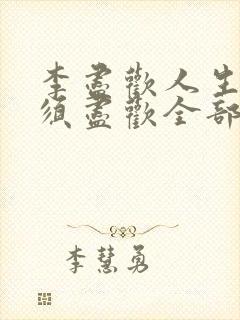 李盡歡人生
須盡歡全部
李慧勇